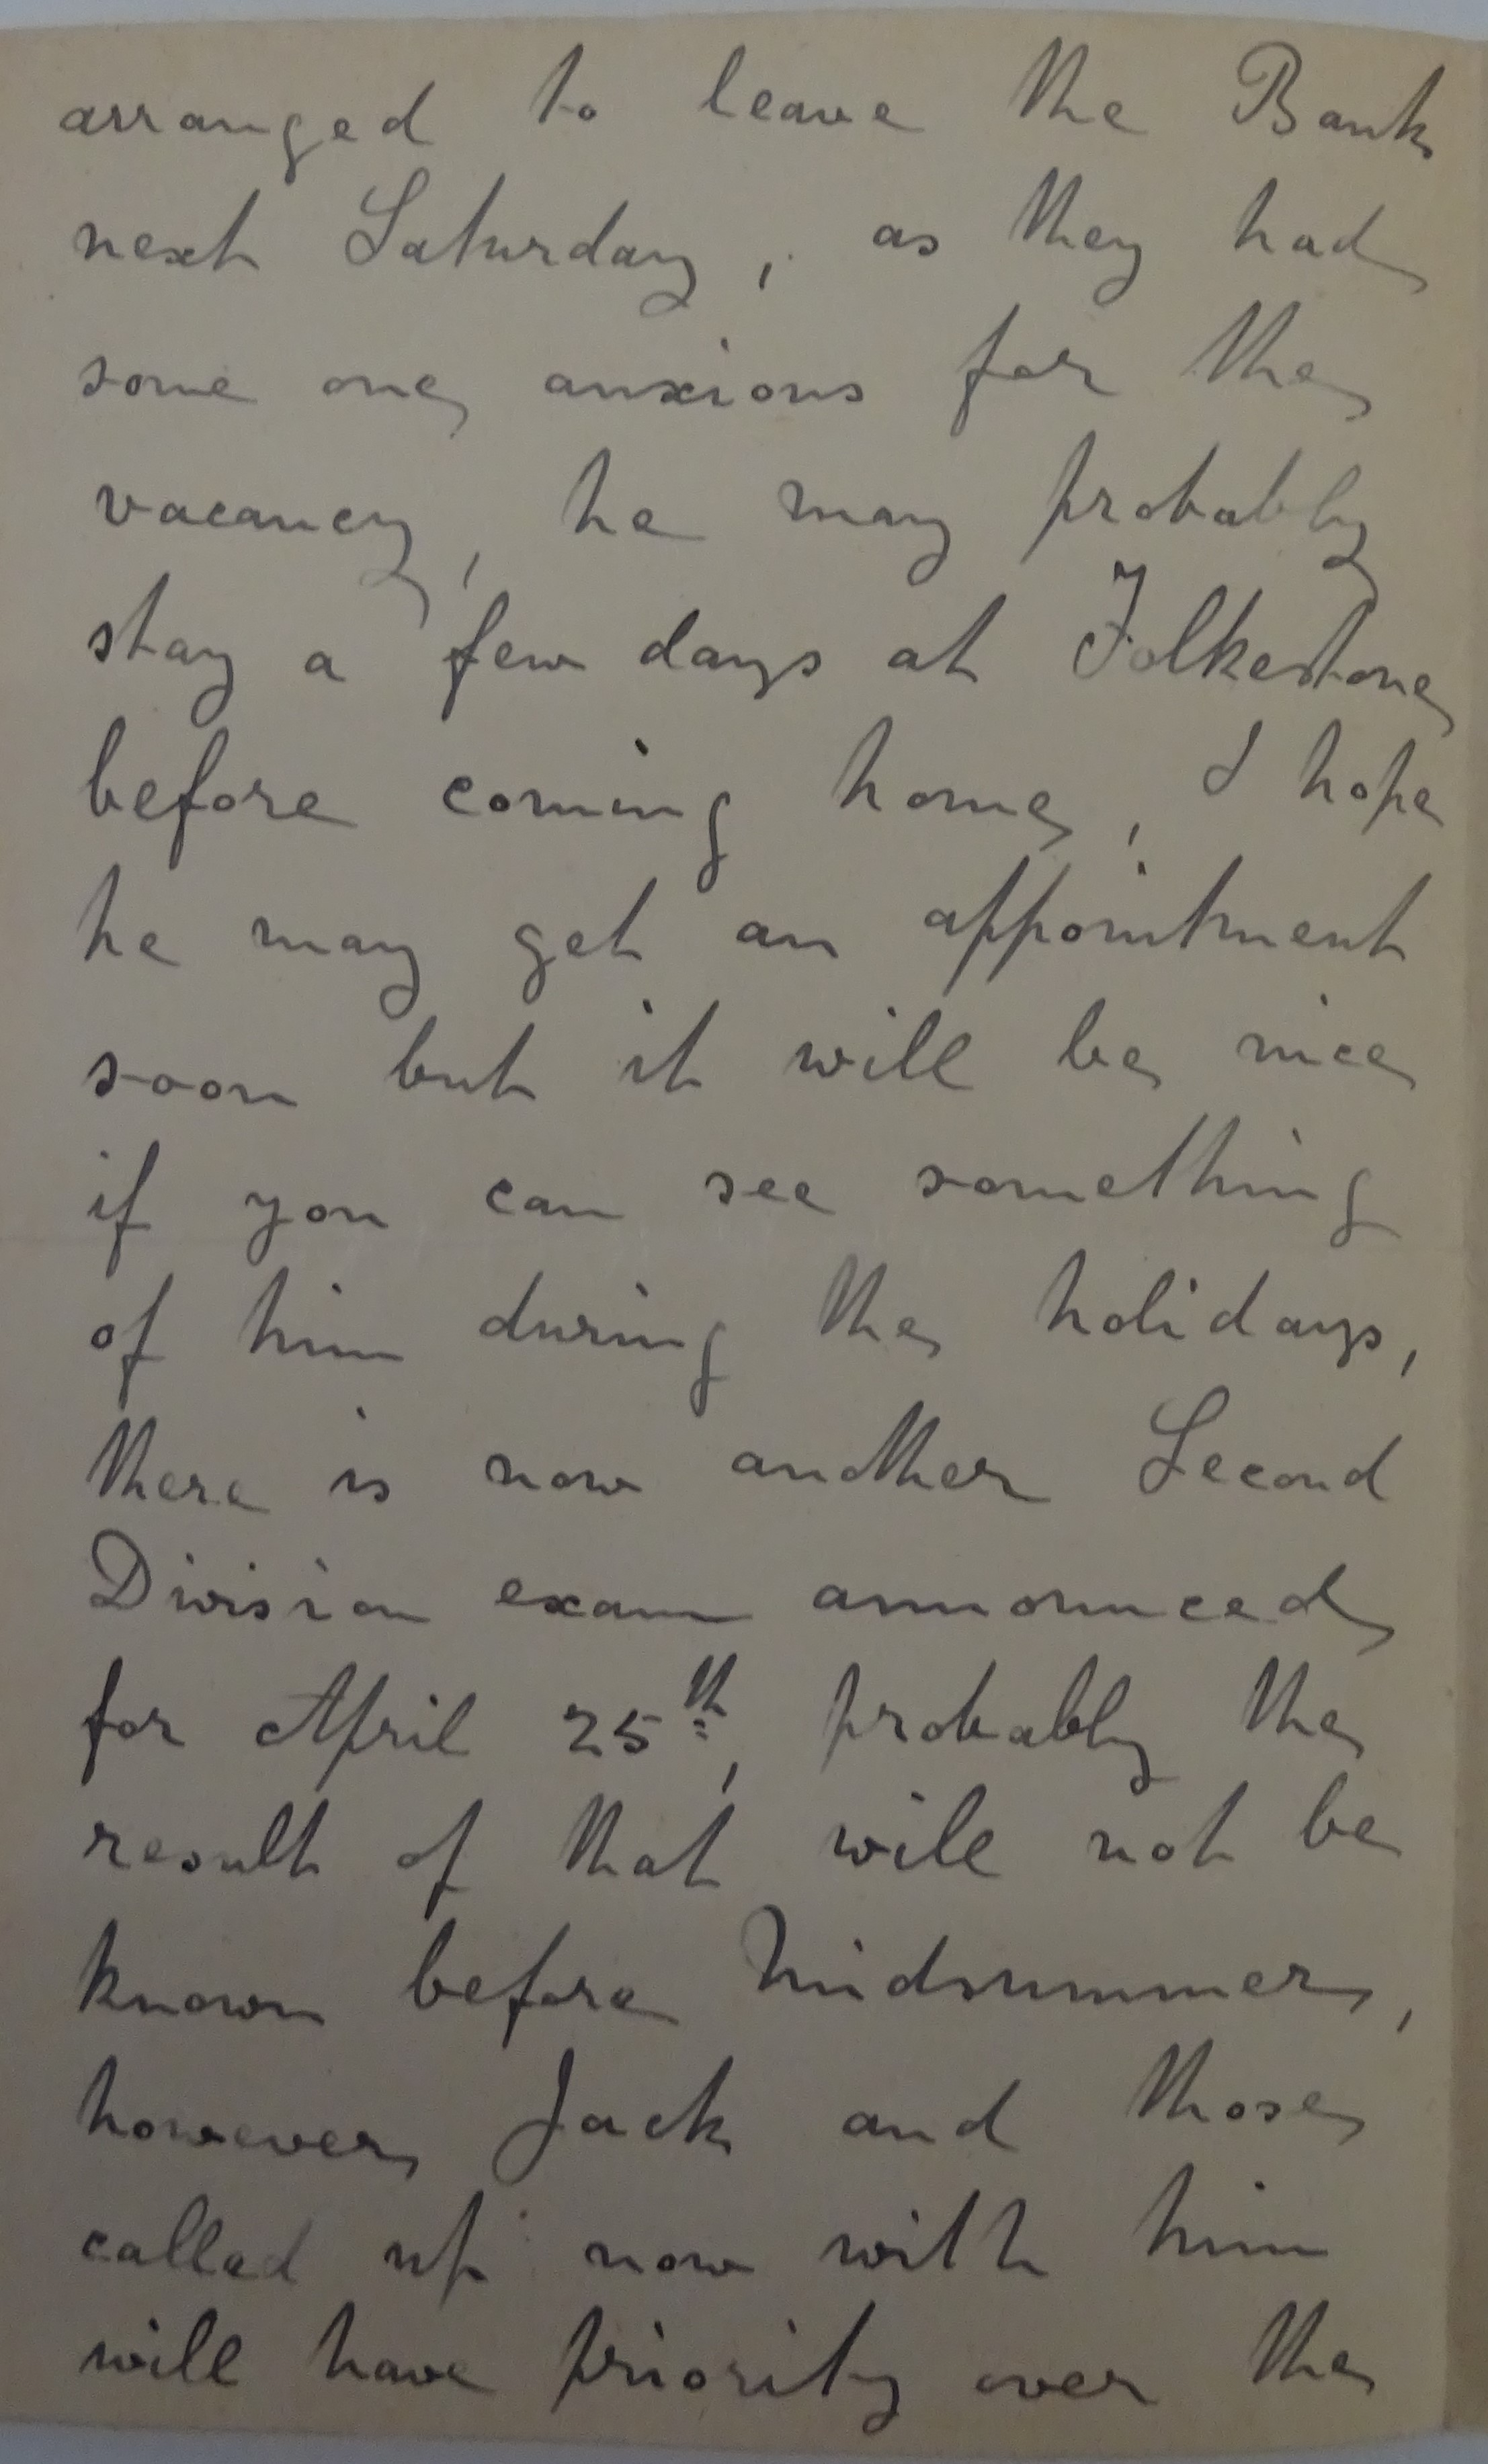 arranged to leave the Bank
next Saturday, as they had
some one anxious for the
vacancy, he may probably
stay a few days at Folkestone
before coming home, I hope
he may get an appointment
soon but it will be nice
if you can see something
of him during the holidays,
there is now another Second
Division exam announced
for April 25th, probably the
result of that will not be
known before Midsummer,
however Jack and those
called up now with him
will have priority over the